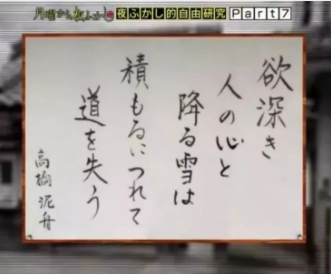 月曜から夜ふかし
夜ふかし的自由研究 Part7
欲深き
人の心と
降る雪は
積もるにつれて
道を失う
高橋泥舟